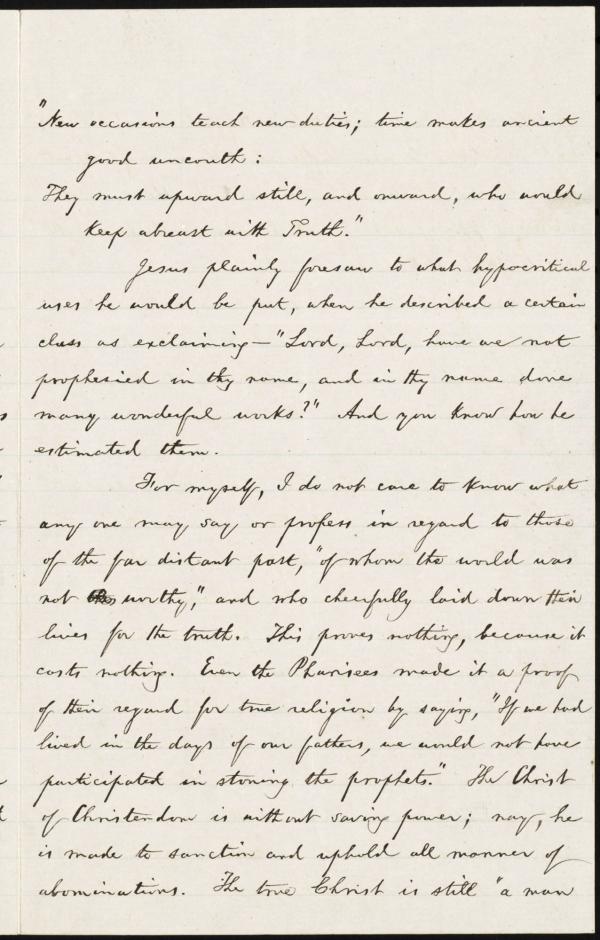 "New occasions teach new duties; time makes ancient
good uncouth:
They must upward still, and onward, who would
keep abreast with Truth."
Jesus plainly foresaw to what hypocritical
uses he would be put, when he described a certain
class as exclaiming—"Lord, Lord, have we not
prophesied in thy name, and in thy name done
many wonderful works?" And you know how he
estimated them.
For myself, I do not care to know what
any one may say or profess in regard to those
of the far distant past, "of whom the world was
not worthy," and who cheerfully laid down their
lives for the truth. This proves nothing, because it
costs nothing. Even the Pharisees made it a proof
of their regard for true religion by saying, "If we had
lived in the days of our fathers, we would not have
participated in stoning the prophets." The Christ
of Christendom is without saving power; nay, he
is made to sanction and uphold all manner of
abominations. The true Christ is still "a man